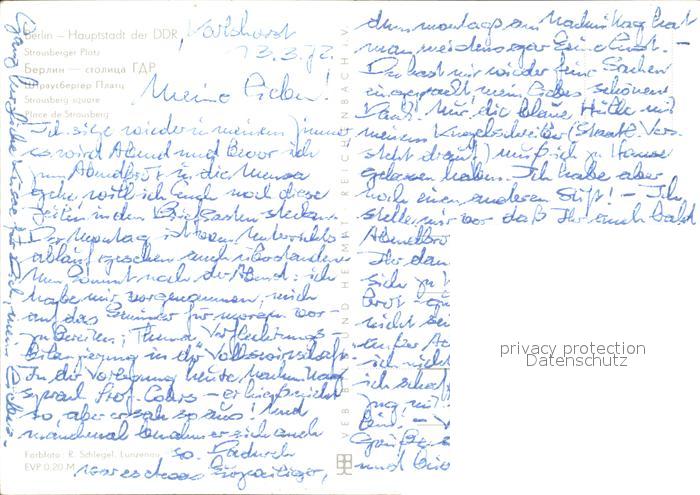 Berlin – Hauptstadt der DDR
Strausberger Platz
Берлин — столица ГДР
Штраусбергер Платц
Strausberg square
Place de Strausberg
Karlshorst
13.3.72.
Meine Lieben!
Ich sitze wieder in meinem Zimmer
es wird Abend und bevor ich
zum Abendbrot in die Mensa
gehe, will ich Euch noch diese
Zeilen in den Briefkasten stecken.
Der Montag ist vom Unterrichts-
ablauf gesehen auch überstanden
Nun kommt noch der Abend: ich
habe mir vorgenommen, mich
auf das Seminar für morgen vor-
zubereiten; Thema Verflechtungs-
bilanzierung in der Volkswirtschaft.
In der Vorlesung heute Nachmittag
sprach Prof. – er hieß nicht
so, aber er sah so aus! Und
manchmal benahm er sich auch
so. Dadurch
war es etwas kurzweiliger,
denn montags am Nachmittag hat
man meistens gar keine Lust. –
Du hast mir wieder feine Sachen
eingepackt, mein liebes schönes
Nur die blaue Hülle mit
meinem Kugelschreiber (
steht drauf) muß ich zu Hause
gelassen haben. Ich habe aber
noch einen anderen Stift! – Ich
stelle mir vor daß Ihr auch bald
Abendbro
Ihr dan
sich zu
brot
nicht sei
ich nicht
ich
Grüße
und
Ganz herzliche Küsse für Dich, mein Liebes.
VEB BILD UND HEIMAT REICHENBACH i. V.
Farbfoto: R. Schlegel, Lunzenau
EVP 0,20 M
privacy protection
Datenschutz